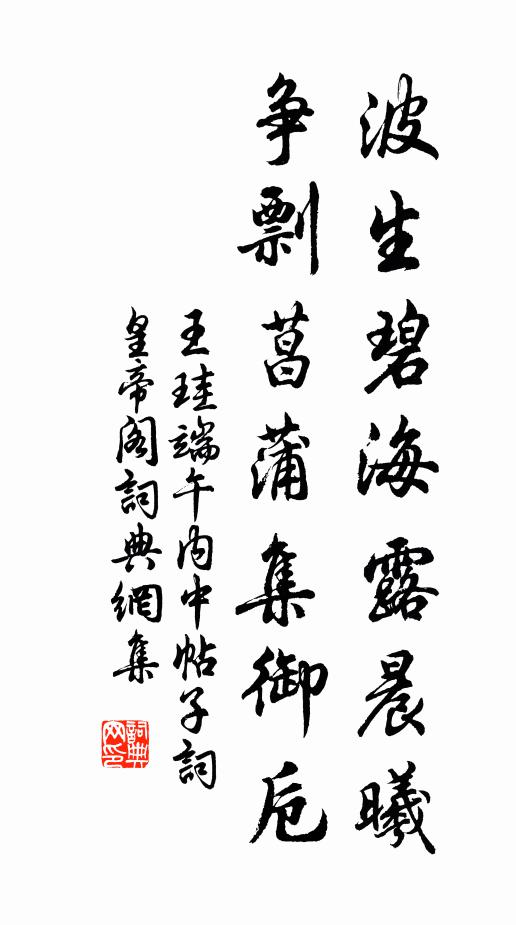 波生碧海露晨曦
争剽菖蒲集御卮
王珪端午内中帖子詞
皇帝阁詞典網集
詞典
网印